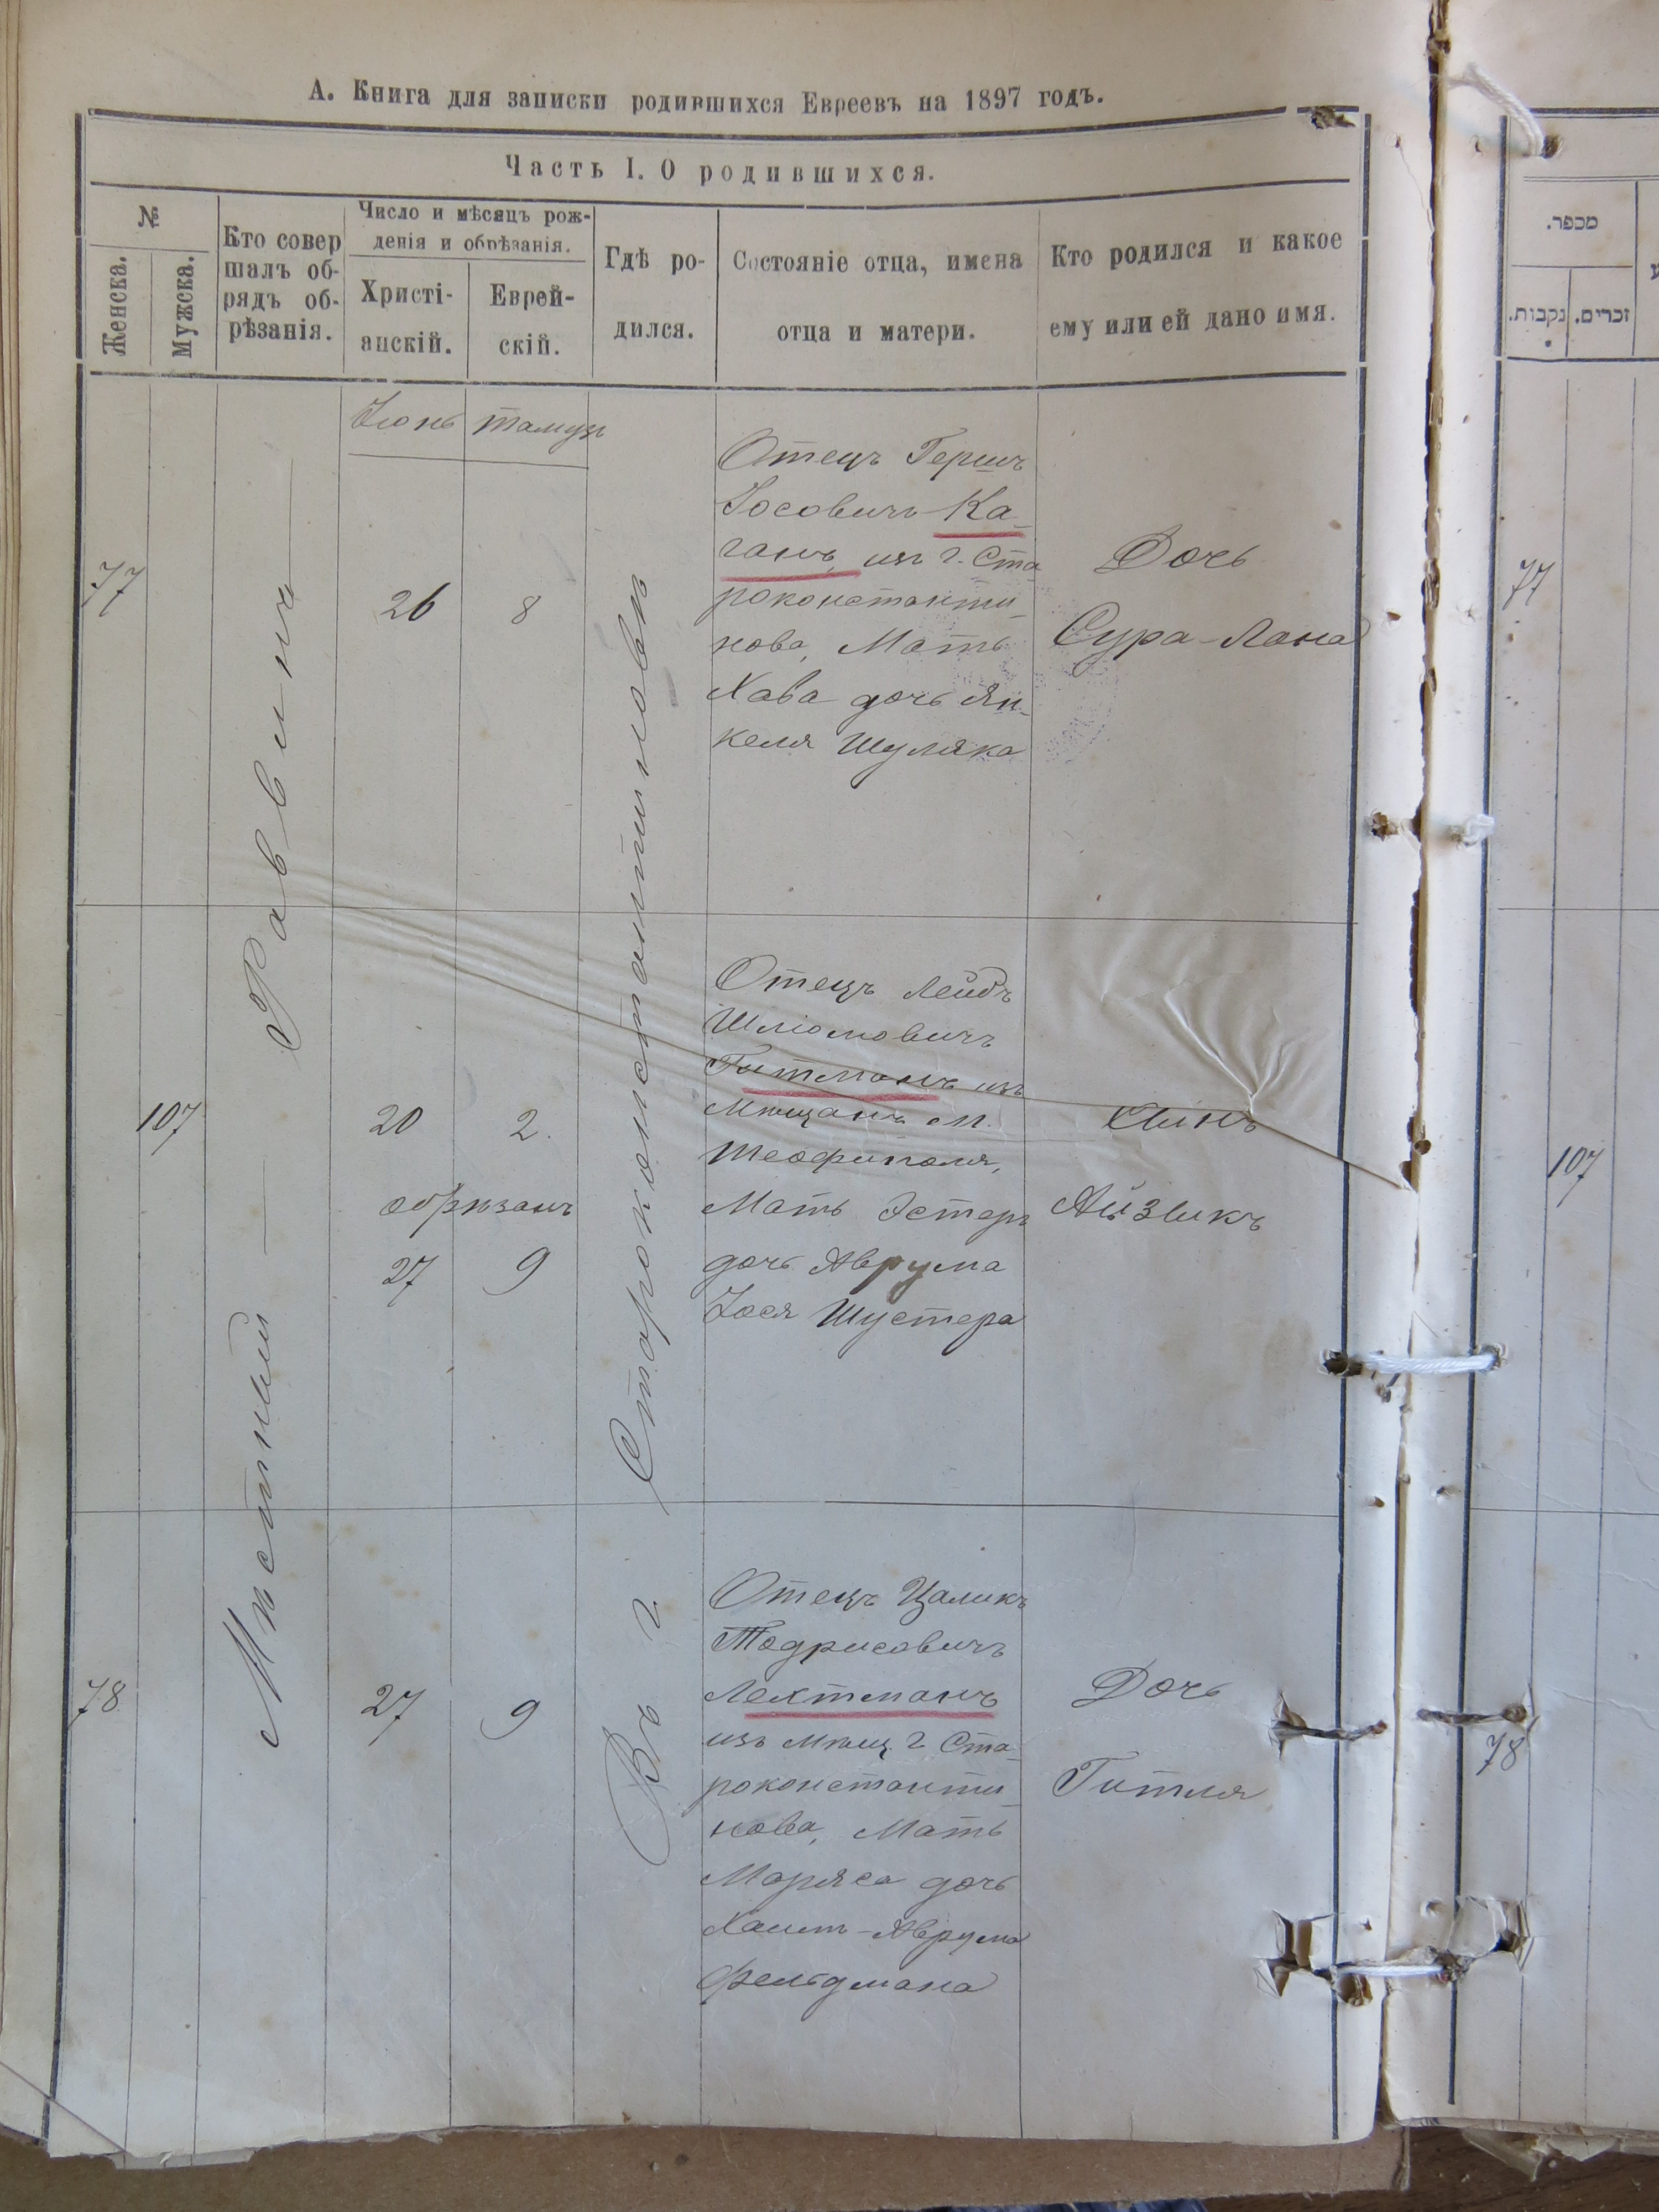 А. Книга для записки родившихся Евреевъ на 1897 годъ.
Часть I. О родившихся.
№
Женска.
Мужска.
Кто совер
шалъ об-
рядъ об-
рѣзанія.
Число и мѣсяцъ рож-
денія и обрѣзанія.
Христі-
анскій.
Еврей-
скій.
Гдѣ ро-
дился.
Состояніе отца, имена
отца и матери.
Кто родился и какое
ему или ей дано имя.
Мѣстный Раввинъ
Въ г. Староконстантиновѣ
Іюнь
тамузъ
77
26
8
Отецъ Гершъ
Іосовичъ Ка-
ганъ, изъ г. Ста
роконстанти-
нова, Мать
Хава дочь Ян-
келя Шуляка
Дочь
Сура-Лана
107
20
2.
обрѣзанъ
27
9
Отецъ Лейбъ
Шліомовичъ
Гитманъ изъ
мѣщанъ м.
Теофиполя,
Мать Эстеръ
дочь Аврума
Іося Шустера
Сынъ
Айзикъ
78
27
9
Отецъ Цаликъ
Тодрисовичъ
Лехтманъ
изъ мѣщ. г. Ста-
роконстанти-
нова, Мать
Маряса дочь
Хаим-Аврума
Фельдмана
Дочь
Гитля
מכפר.
נקבות.
זכרים.
77
107
78